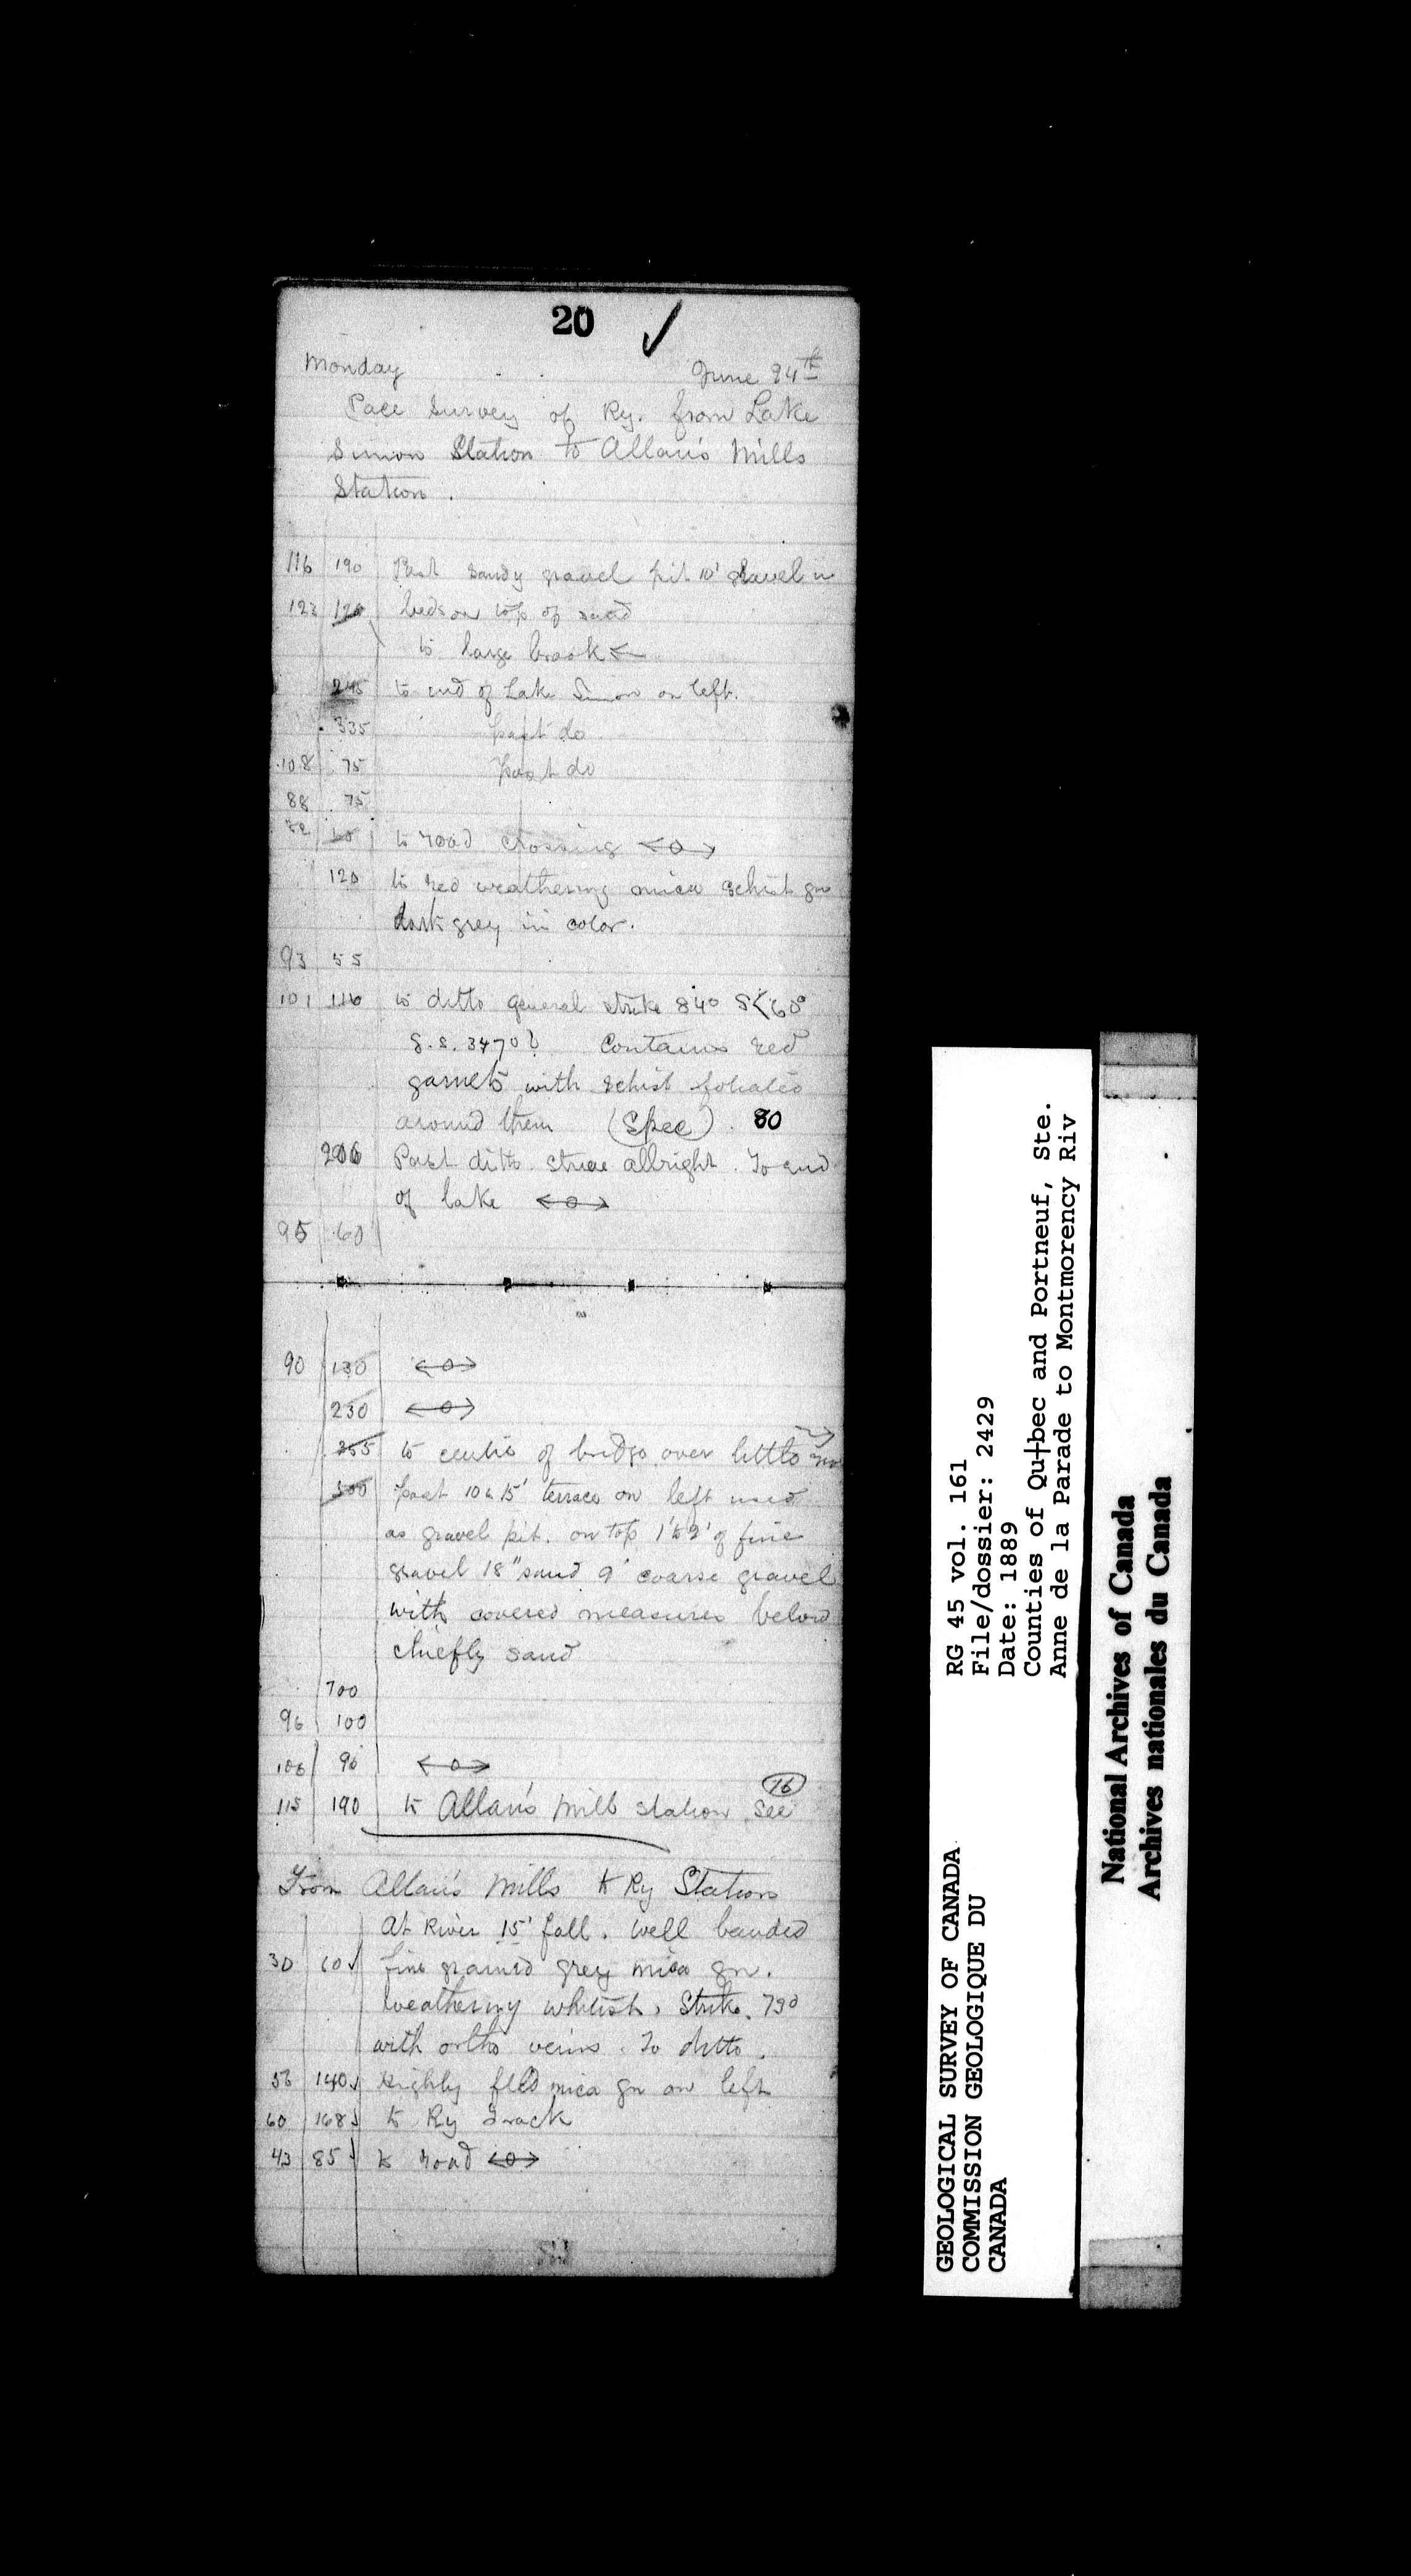 20 ✓
Monday June 24th
Pace Survey of Ry. from Lake
Simon Station to Allan's Mills
Station.
116 190 Past sandy gravel pit 10' gravel in
123 120 beds on top of sand
to large brook ←
245 to end of Lake Simon on left.
335 past do
108 75 past do
88 75
to road crossing ←o→
120 to red weathering mica schist gn
dark grey in color.
93 55
101 110 to ditto general strike 84° S<60°
g.s. 347°? Contains red
garnets with schist foliated
around them (Spec). 80
200 Past ditto. struc allright. To end
of lake ←o→
95 60
90 130 ←o→
230 ←o→
355 to centre of bridge over little
500 past 10 to 15' terrace on left used
as gravel pit. on top 1' to 2' of fine
gravel 18" sand 9' coarse gravel
with covered measures below
chiefly sand
700
96 100
106 90 ←o→
115 190 to Allan's Mill station see 16
From Allan's Mills to Ry Station
At River 15' fall. Well banded
30 60 fine grained grey mica gn.
weathering whitish. Strike. 790
with ortho veins. To ditto.
56 140 highly fld mica gn on left
60 168 to Ry Track
43 85 to road ←o→
GEOLOGICAL SURVEY OF CANADA
COMMISSION GEOLOGIQUE DU
CANADA
RG 45 vol. 161
File/dossier: 2429
Date: 1889
Counties of Qu†bec and Portneuf, Ste.
Anne de la Parade to Montmorency Riv
National Archives of Canada
Archives nationales du Canada